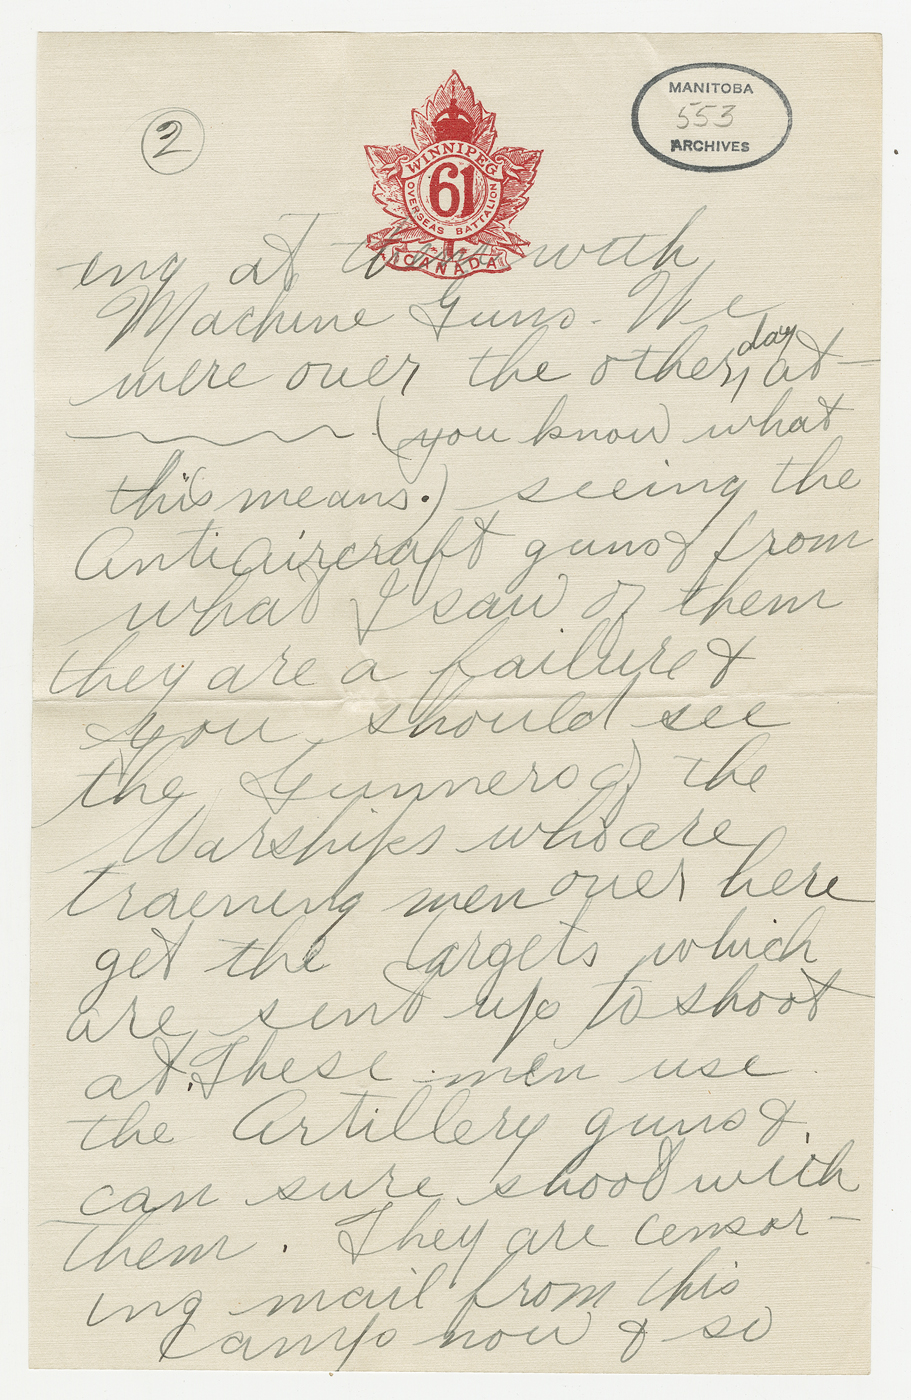 2
MANITOBA
553
ARCHIVES
WINNIPEG
61
OVERSEAS BATTALION
CANADA
eng at them with
Machine Guns. We
were over the other day at
(you know what
this means.) seeing the
Antiaircraft guns & from
what I saw of them
they are a failure &
you should see
the Gunners of the
Warships who are
training men over here
get the targets which
are sent up to shoot
at. These men use
the Artillery guns &
can sure shoot with
them. They are censor-
ing mail from this
camp now & so